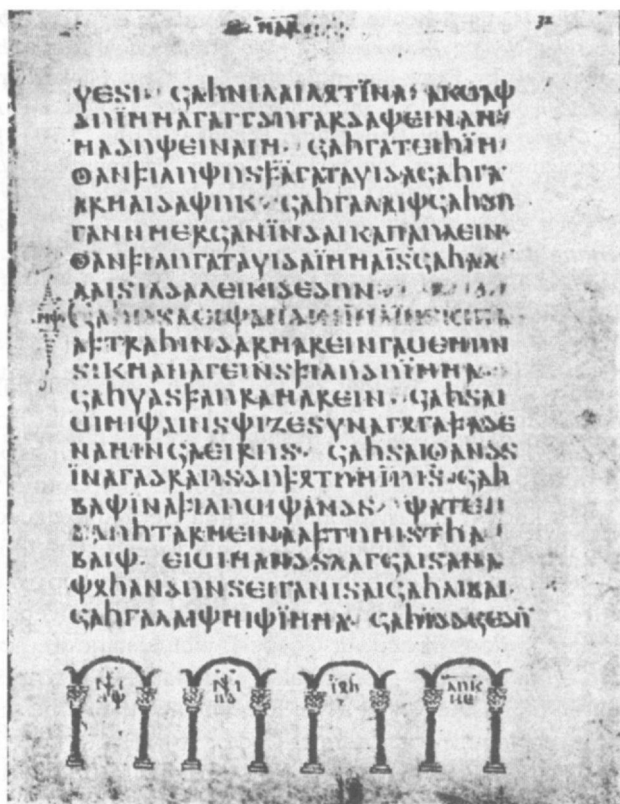 𐌼𐌰𐍂
𐍅𐌴𐍃𐌹· 𐌾𐌰𐌷𐌽𐌹𐌻𐌰𐌹𐌻𐍉𐍄𐌹̈𐌽𐌰· 𐌰𐌺𐌵𐌰𐌸
𐌳𐌿𐌹̈𐌼𐌼𐌰𐌲𐌰𐌲𐌲𐌳𐌿𐌲𐌰𐍂𐌳𐌰𐌸𐌴𐌹𐌽𐌰𐌼
𐌼𐌰𐌳𐌿𐌸𐌴𐌹𐌽𐌰𐌹𐌼· 𐌾𐌰𐌷𐌲𐌰𐍄𐌴𐌹𐌷𐌹̈𐌼·
𐍈𐌰𐌽𐍆𐌹𐌻𐌿𐌸𐌿𐍃𐍆̅𐌰̅𐌲𐌰𐍄𐌰𐍅𐌹𐌳𐌰𐌾𐌰𐌷𐌲𐌰
𐌰𐍂𐌼𐌰𐌹𐌳𐌰𐌸𐌿𐌺· 𐌾𐌰𐌷𐌲𐌰𐌻𐌰𐌹𐌸𐌾𐌰𐌷𐌳𐌿
𐌲𐌰𐌽𐌽𐌼𐌴𐍂𐌾𐌰𐌽𐌹̈𐌽𐌳𐌰𐌹𐌺𐌰𐍀𐌰𐌿𐌻𐌴𐌹𐌽·
𐍈𐌰𐌽𐍆𐌹𐌻𐌿𐌲𐌰𐍄𐌰𐍅𐌹𐌳𐌰𐌹̈𐌼𐌼𐌰𐌹̅𐍃̅𐌾𐌰𐌷𐌰𐌻
𐌻𐌰𐌹𐍃𐌹𐌻𐌳𐌰𐌻𐌴𐌹𐌺𐌹𐌳𐌴𐌳𐌿𐌽·
𐌾𐌰𐌷𐌿𐍃𐌻𐌴𐌹𐌸𐌰𐌽𐌳𐌹𐌽𐌹̅𐌿̅𐌰̅𐌹̈𐌽𐍃𐌺𐌹𐍀𐌰
𐌰𐍆𐍄𐍂𐌰𐌷𐌹𐌽𐌳𐌰𐍂𐌼𐌰𐍂𐌴𐌹𐌽𐌲𐌰𐌵𐌴𐌼𐌿𐌽
𐍃𐌹𐌺𐌼𐌰𐌽𐌰𐌲𐌴𐌹𐌽𐍃𐍆𐌹𐌻𐌿𐌳𐌿𐌹̈𐌼𐌼𐌰·
𐌾𐌰𐌷𐍅𐌰𐍃𐍆𐌰𐌿𐍂𐌰𐌼𐌰𐍂𐌴𐌹𐌽· 𐌾𐌰𐌷𐍃𐌰𐌹
𐌵𐌹𐌼𐌹𐌸𐌰𐌹𐌽𐍃𐌸𐌹𐌶𐌴𐍃𐍅𐌽𐌰𐌲𐍉𐌲𐌰𐍆𐌰𐌳𐌴
𐌽𐌰𐌼𐌹𐌽𐌾𐌰𐌴𐌹𐍂𐌿𐍃· 𐌾𐌰𐌷𐍃𐌰𐌹𐍈𐌰𐌽𐌳𐍃
𐌹̈𐌽𐌰𐌲𐌰𐌳𐍂𐌰𐌿𐍃𐌳𐌿𐍆𐍉𐍄𐌿𐌼𐌹̅𐌿̅𐌹̅𐍃̅· 𐌾𐌰𐌷
𐌱𐌰𐌸𐌹̈𐌽𐌰𐍆𐌹𐌻𐌿𐌵𐌹𐌸𐌰𐌽𐌳𐍃· 𐌸𐌰𐍄𐌴𐌹
𐌳𐌰𐌿𐌷𐍄𐌰𐍂𐌼𐌴𐌹𐌽𐌰𐌰𐍆𐍄𐌿𐌼𐌹𐍃𐍄𐌷𐌰
𐌱𐌰𐌹𐌸· 𐌴𐌹𐌵𐌹𐌼𐌰𐌽𐌳𐍃𐌻𐌰𐌲𐌾𐌰𐌹𐍃𐌰𐌽𐌰
𐌸𐍉𐌷𐌰𐌽𐌳𐌿𐌽𐍃𐌴𐌹𐌲𐌰𐌽𐌹𐍃𐌰𐌹𐌾𐌰𐌷𐌻𐌹𐌱𐌰𐌹·
𐌾𐌰𐌷𐌲𐌰𐌻𐌰𐌹𐌸𐌼𐌹𐌸𐌹̈𐌼𐌼𐌰· 𐌾𐌰𐌷𐌹̈𐌳𐌳𐌾𐌴𐌳𐌿𐌽
𐌹𐍉𐌷
𐌻𐌿𐌺